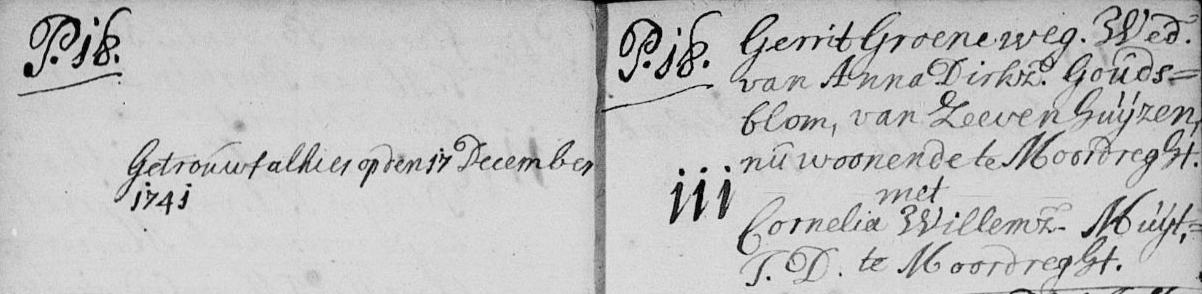 P. 18.
Getrouwt alhier op den 17 December
1741
P. 18.
Gerrit Groeneweg. Wed.
van Anna Dirkz. Gouds=
blom, van Zeevenhuÿzen,
nu woonende te Moordreght
iii
met
Cornelia Willemz. Muÿt,=
J. D. te Moordreght.